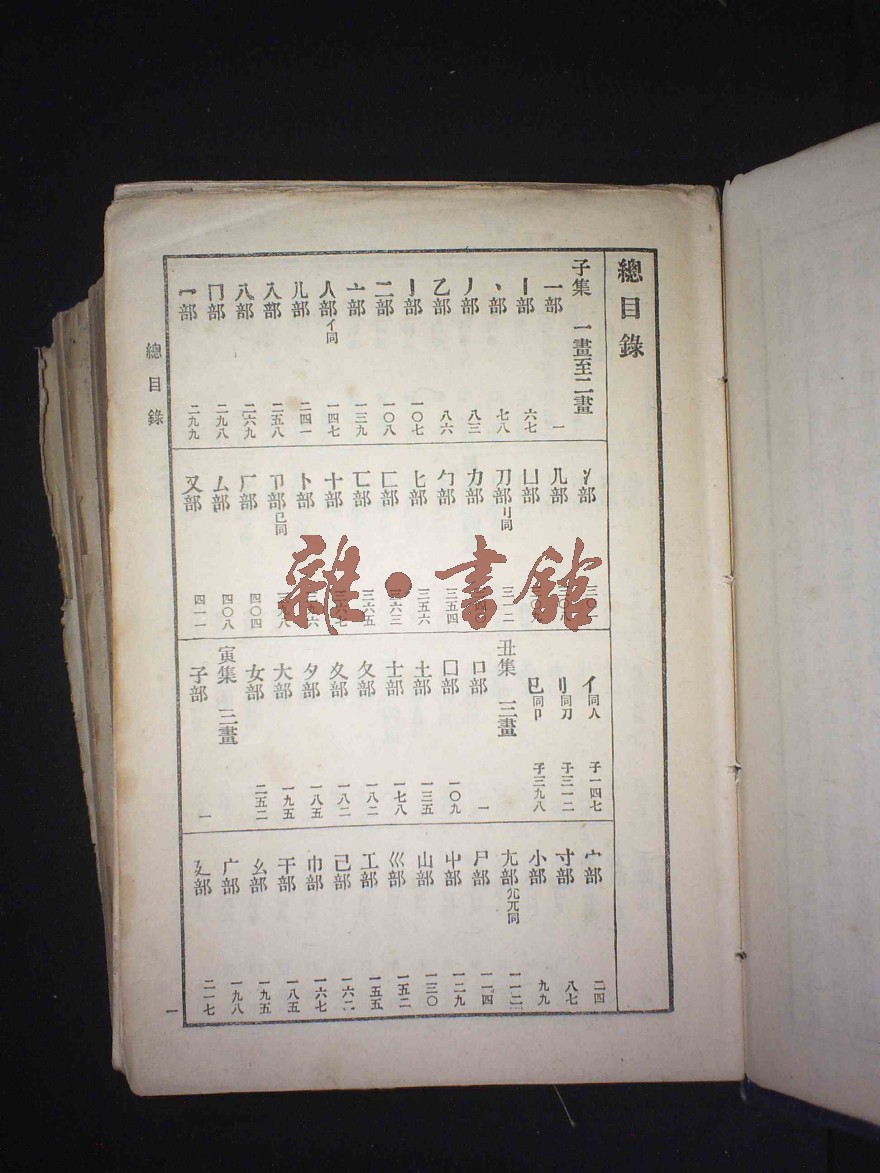 總目錄
子集 一畫至二畫
一部 一
丨部 六七
丶部 七八
丿部 八三
乙部 八六
亅部 一〇七
二部 一〇八
亠部 一三九
人部亻同 一四七
儿部 二四一
入部 二五八
八部 二六九
冂部 二九八
冖部 二九九
冫部
几部
凵部
刀部刂同 三一二
力部
勹部 三五四
匕部 三五六
匚部 三六三
匸部 三六五
十部
卜部
卩部㔾同
厂部 四〇四
厶部 四〇八
又部 四一一
亻同人 子一四七
刂同刀 子三一二
㔾同卩 子三九八
丑集 三畫
口部 一
囗部 一〇九
土部 一三五
士部 一七八
夂部 一八二
夊部 一八二
夕部 一八五
大部 一九五
女部 二五二
寅集 三畫
子部 一
宀部 二四
寸部 八七
小部 九九
尢部尣兀同
尸部 一一四
屮部 一二九
山部 一三〇
巛部 一五二
工部 一五五
己部
巾部 一六七
干部 一八五
幺部 一九五
广部 一九八
廴部 二一七
總目錄
一
雜·書館